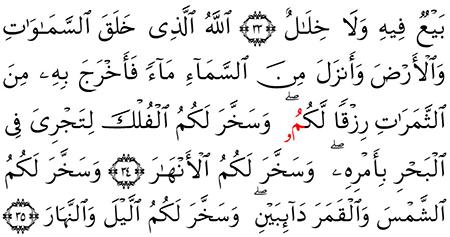 بَيْعٌ فِيهِ وَلَا خِلَـٰلٌ ۝٣٣ ٱللَّهُ ٱلَّذِى خَلَقَ ٱلسَّمَـٰوَٰتِ
وَٱلْأَرْضَ وَأَنزَلَ مِنَ ٱلسَّمَآءِ مَآءً فَأَخْرَجَ بِهِۦ مِنَ
ٱلثَّمَرَٰتِ رِزْقًا لَّكُمُۥ ۖ وَسَخَّرَ لَكُمُ ٱلْفُلْكَ لِتَجْرِىَ فِى
ٱلْبَحْرِ بِأَمْرِهِۦ ۖ وَسَخَّرَ لَكُمُ ٱلْأَنْهَـٰرَ ۝٣٤ وَسَخَّرَ لَكُمُ
ٱلشَّمْسَ وَٱلْقَمَرَ دَآئِبَيْنِ ۖ وَسَخَّرَ لَكُمُ ٱلَّيْلَ وَٱلنَّهَارَ ۝٣٥